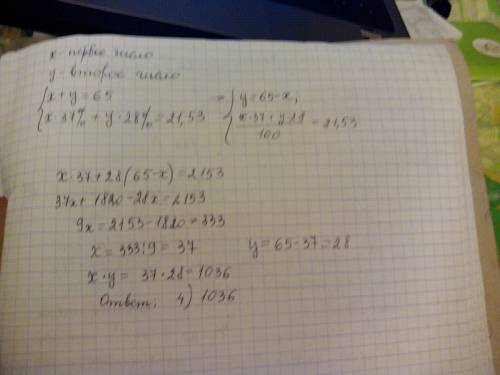 x - первое число
y - второе число
{ x + y = 65 => { y = 65 - x;
x · 37% + y · 28% = 21,53 (x · 37 + y · 28)/100 = 21,53
x · 37 + 28(65 - x) = 2153
37x + 1820 - 28x = 2153
9x = 2153 - 1820 = 333
x = 333 : 9 = 37 y = 65 - 37 = 28
x · y = 37 · 28 = 1036
Ответ: 4) 1036